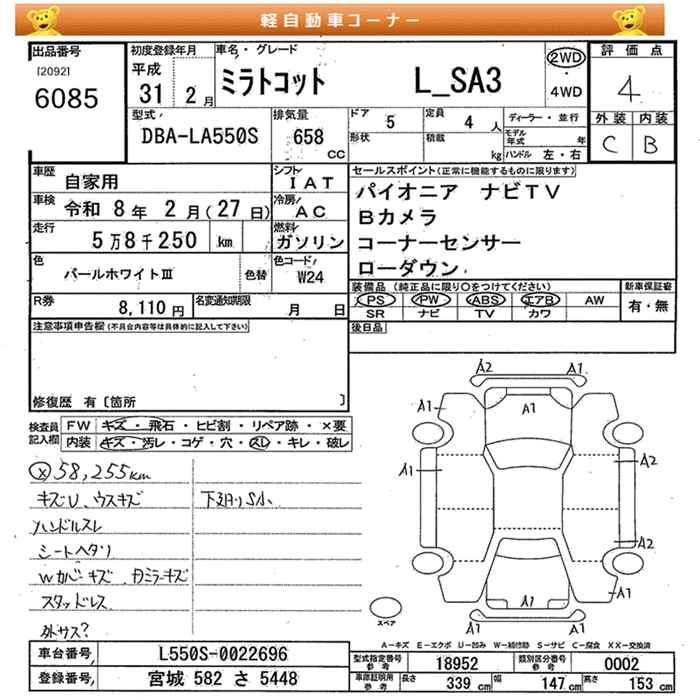 軽自動車コーナー
出品番号
[2092]
6085
初度登録年月
平成
31年 2月
車名・グレード
ミラトコット L_SA3
2WD
・
4WD
評価点
4
外装 内装
C B
型式
DBA-LA550S
排気量
658
CC
ドア 5
定員 4 人
形状
積載 kg
ディーラー・並行
モデル年式 年
ハンドル 左・右
車歴 自家用
シフト IAT
車検 令和 8年 2月(27日)
冷房 AC
走行 5万8千250 km
燃料 ガソリン
色 パールホワイトⅢ 色替
色コード W24
R券 8,110円
名変通知期限 月 日
セールスポイント(正常に機能するものに限ります)
パイオニア ナビTV
Bカメラ
コーナーセンサー
ローダウン
装備品(純正品に限り○をつけてください)
PS PW ABS エアB AW
SR ナビ TV カワ
新車保証書
有・無
後日品
注意事項申告欄(不具合内容等は具体的に記入して下さい)
修復歴 有〔箇所 〕
検査員記入欄
FW キズ・飛石・ヒビ割・リペア跡・×要
内装 キズ・汚レ・コゲ・穴・スレ・キレ・破レ
ⓧ58,255km
キズU、ウスキズ
下廻りSA、
ハンドルスレ
シートヘタリ
Wカバーキズ
ミラーキズ
スタッドレス
外サス?
A2 A1
A1 A1 A1
A1 A2
A2
A1 A1
A1
スペア
A-キズ E-エクボ U-凹み W-補修跡 S-サビ C-腐食 XX-交換済
車台番号 L550S-0022696
登録番号 宮城 582 さ 5448
型式指定番号 参考 18952
類別区分番号 参考 0002
車庫証明用 参考 長さ 339cm 幅 147cm 高さ 153cm